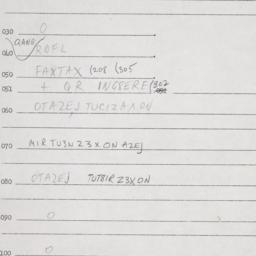 030 O
QANG
040 ROFL
050 FAXTAX (208 (305
051 + QR INGSERE (302
060 OTAZEJ TUCIZAXON
070 MIRTUSNZ3XONAZEJ
080 OTAZEJ TUTBIRZ3XON
090 O
100 O